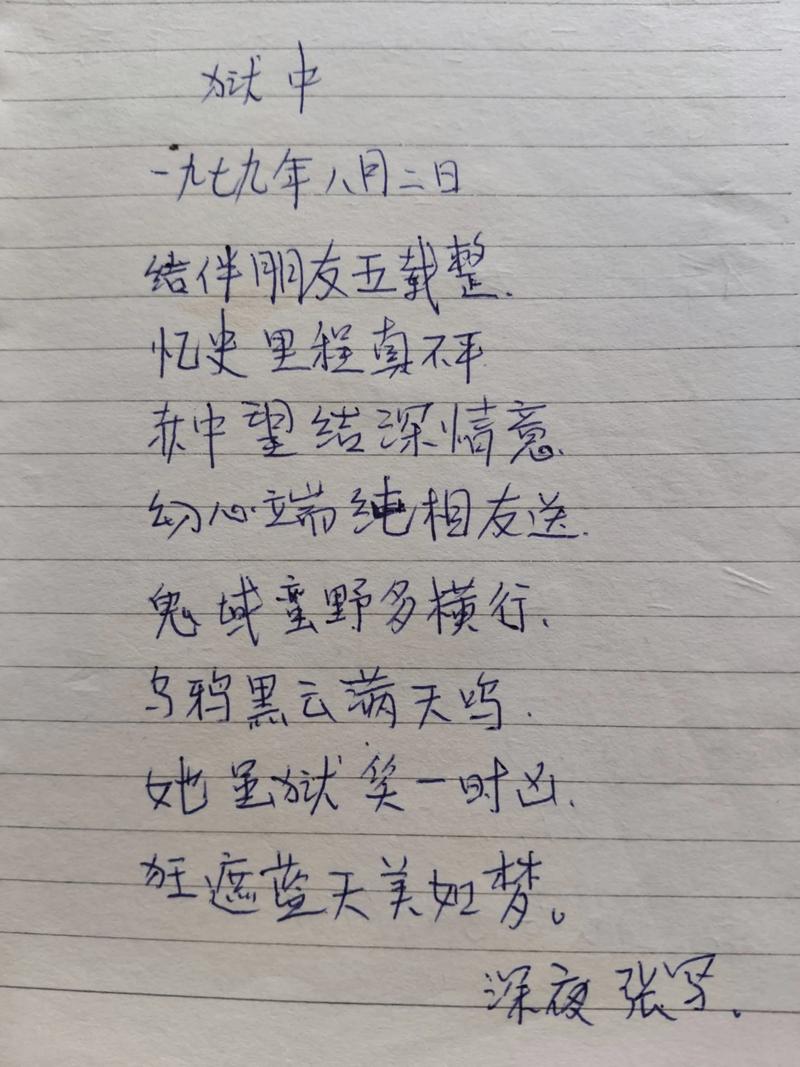 狱中
一九七九年八月二日
结伴朋友五载整.
忆史里程真不平
狱中望结深情意.
幼心端纯相友送.
鬼域蛮野多横行.
乌鸦黑云满天呜.
她虽狱笑一时凶.
狂遮蓝天美如梦。
深夜张写.